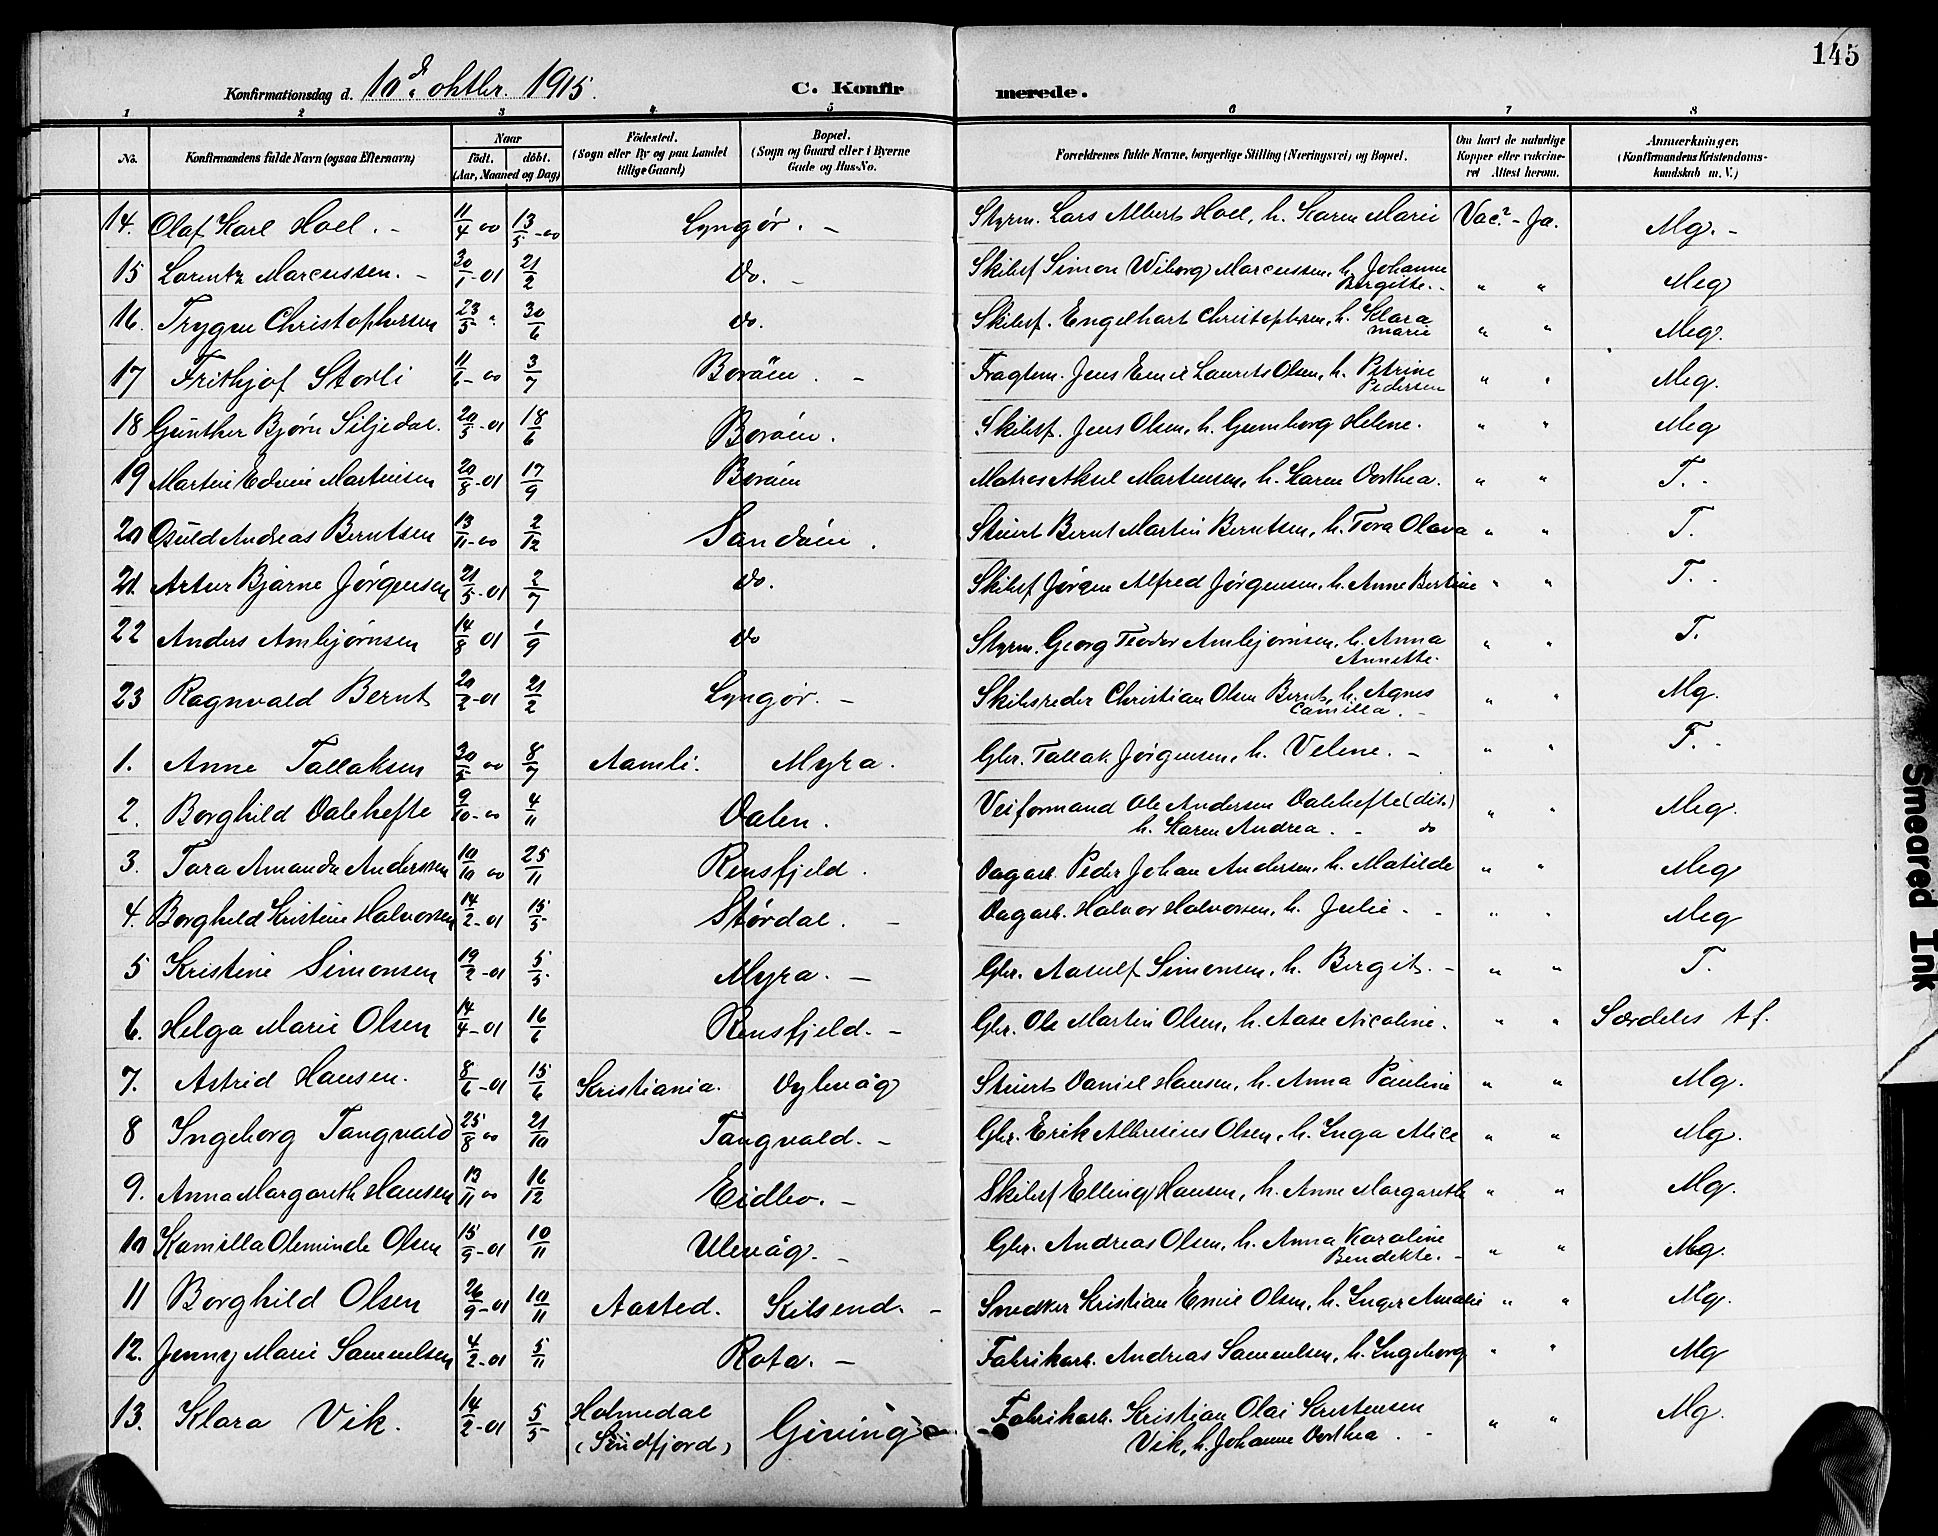 145
Konfirmationsdag d. 10de oktbr. 1915. C. Konfirmerede.
1 2 3 4 5 6 7 8
No. Konfirmandens fulde Navn (ogsaa Efternavn) Naar født. døbt. (Aar, Maaned og Dag) Fødested. (Sogn eller By og paa Landet tillige Gaard) Bopæl. (Sogn og Gaard eller i Byerne Gade og Hus-No. Forældrenes fulde Navne, borgerlige Stilling (Næringsvei) og Bopæl. Om havt de naturlige Kopper eller vakcineret Attest herom. Anmærkninger. (Konfirmandens Kristendomskundskab m. V.)
14. Olaf Karl Hoel. - 11/4 00 13/5-00 Lyngør. - Styrm. Lars Albert Hoel, h. Karen Marie Vac? - Ja. Mg. -
15 Lorentz Marcussen. - 30/1-01 21/2 do. - Skibsf Simon Wiborg Marcussen, h. Johanne Bergitte. - " " Meg
16. Trygve Christophersen 23/5 " 30/6 do. Skibsf. Engelhart Christophersen, h. Klara Marie " " Meg.
17 Frithjof Storli 11/6-00 3/7 Borøen. - Fragtem. Jens Emil Laurits Olsen, h. Petrine Pedersen " " Meg.
18 Günther Bjørn Siljedal. 20/5-01 18/6 Borøen. Skibsf. Jens Olsen, h. Gunborg Helene. " " Meg
19 Martin Edvin Martinsen 20/8-01 17/9 Borøen Matros Aksel Martensen, h. Karen Dorthea. " " T. -
20 Osuld Andreas Berntsen 13/11-00 2/12 Sandøen. Stuert Bernt Martin Berntsen, h. Tora Olava " " T.
21. Artur Bjarne Jørgensen 21/5-01 2/7 do. Skibsf Jørgen Alfred Jørgensen, h. Anne Bertine " " T. -
22 Anders Ambjørnsen 14/8 01 1/9 do Styrm. Georg Teodor Ambjørnsen, h. Anna Annette. " " T.
23 Ragnvald Bernt 20/2-01 21/2 Lyngør. - Skibsreder Christian Olsen Bernt, h. Agnes Camilla. - " " Mg.
1. Anne Tallaksen 30/5 00 8/7 Aamli. Myra. Gbr. Tallak Jørgensen, h. Velene. - " " T. -
2. Borghild Dalehefte 9/10-00 4/11 Dalen. Veiformand Ole Andersen Dalehefte (dis.) h. Karen Andrea. - do " " Meg.
3. Tora Amanda Anderssen 10/10 00 25/11 Rensfjeld. Dagarb. Peder Johan Andersen, h. Matilde " " Meg
4. Borghild Kristine Halvorsen 14/2-01 15/5 Størdal. - Dagarb. Halvor Halvorsen, h. Julie. - " " Meg
5 Kristine Simonsen 19/2-01 5/5 Myra. - Gbr. Aasulf Simonsen, h. Bergit. - " " T.
6. Helga Marie Olsen 14/4-01 16/6 Rensfjeld. - Gbr. Ole Martin Olsen, h. Aase Nicoline. " " Særdeles tf.
7. Astrid Hansen. 8/6-01 15/6 Kristiania. Dybvåg Stuert Daniel Hansen, h. Anna Pauline " " Mg.
8 Ingeborg Tangvald 25/8 00 21/10 Tangvald. - Gbr. Erik Albresius Olsen, h. Inga Alice " " Mg.
9. Anna Margareth Hansen 13/11 00 16/12 Eidbo. - Skibsf Elling Hansen, h. Anne Margarethe " " Mg.
10 Kamilla Oleminde Olsen 15/9-01 10/11 Ulevåg. - Gbr. Andreas Olsen, h. Anna Karoline Bendekte. - " " Mg.
11 Borghild Olsen 26/9-01 10/11 Aasted. Kilsend. - Snedker Kristian Emil Olsen, h. Inger Amalie " " Mg.
12. Jenny Marie Samuelsen 4/2-01 5/11 Rota. - Fabrikarb. Andreas Samuelsen, h. Ingeborg " " Mg
13. Klara Vik. 14/2-01 5/5 Holmedal (Sundfjord) Giving - Fabrikarb. Kristian Olai Kristensen Vik, h. Johanne Dorthea. - " " Mg.
Smeared Ink